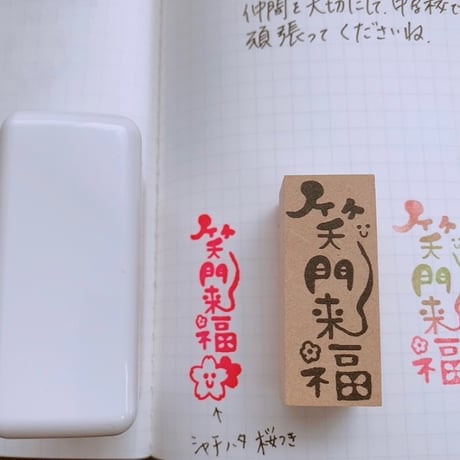 仲間を大切にして、中学校で
頑張ってくださいね.
笑門来福
笑門来福
笑門来福
シャチハタ 桜つき